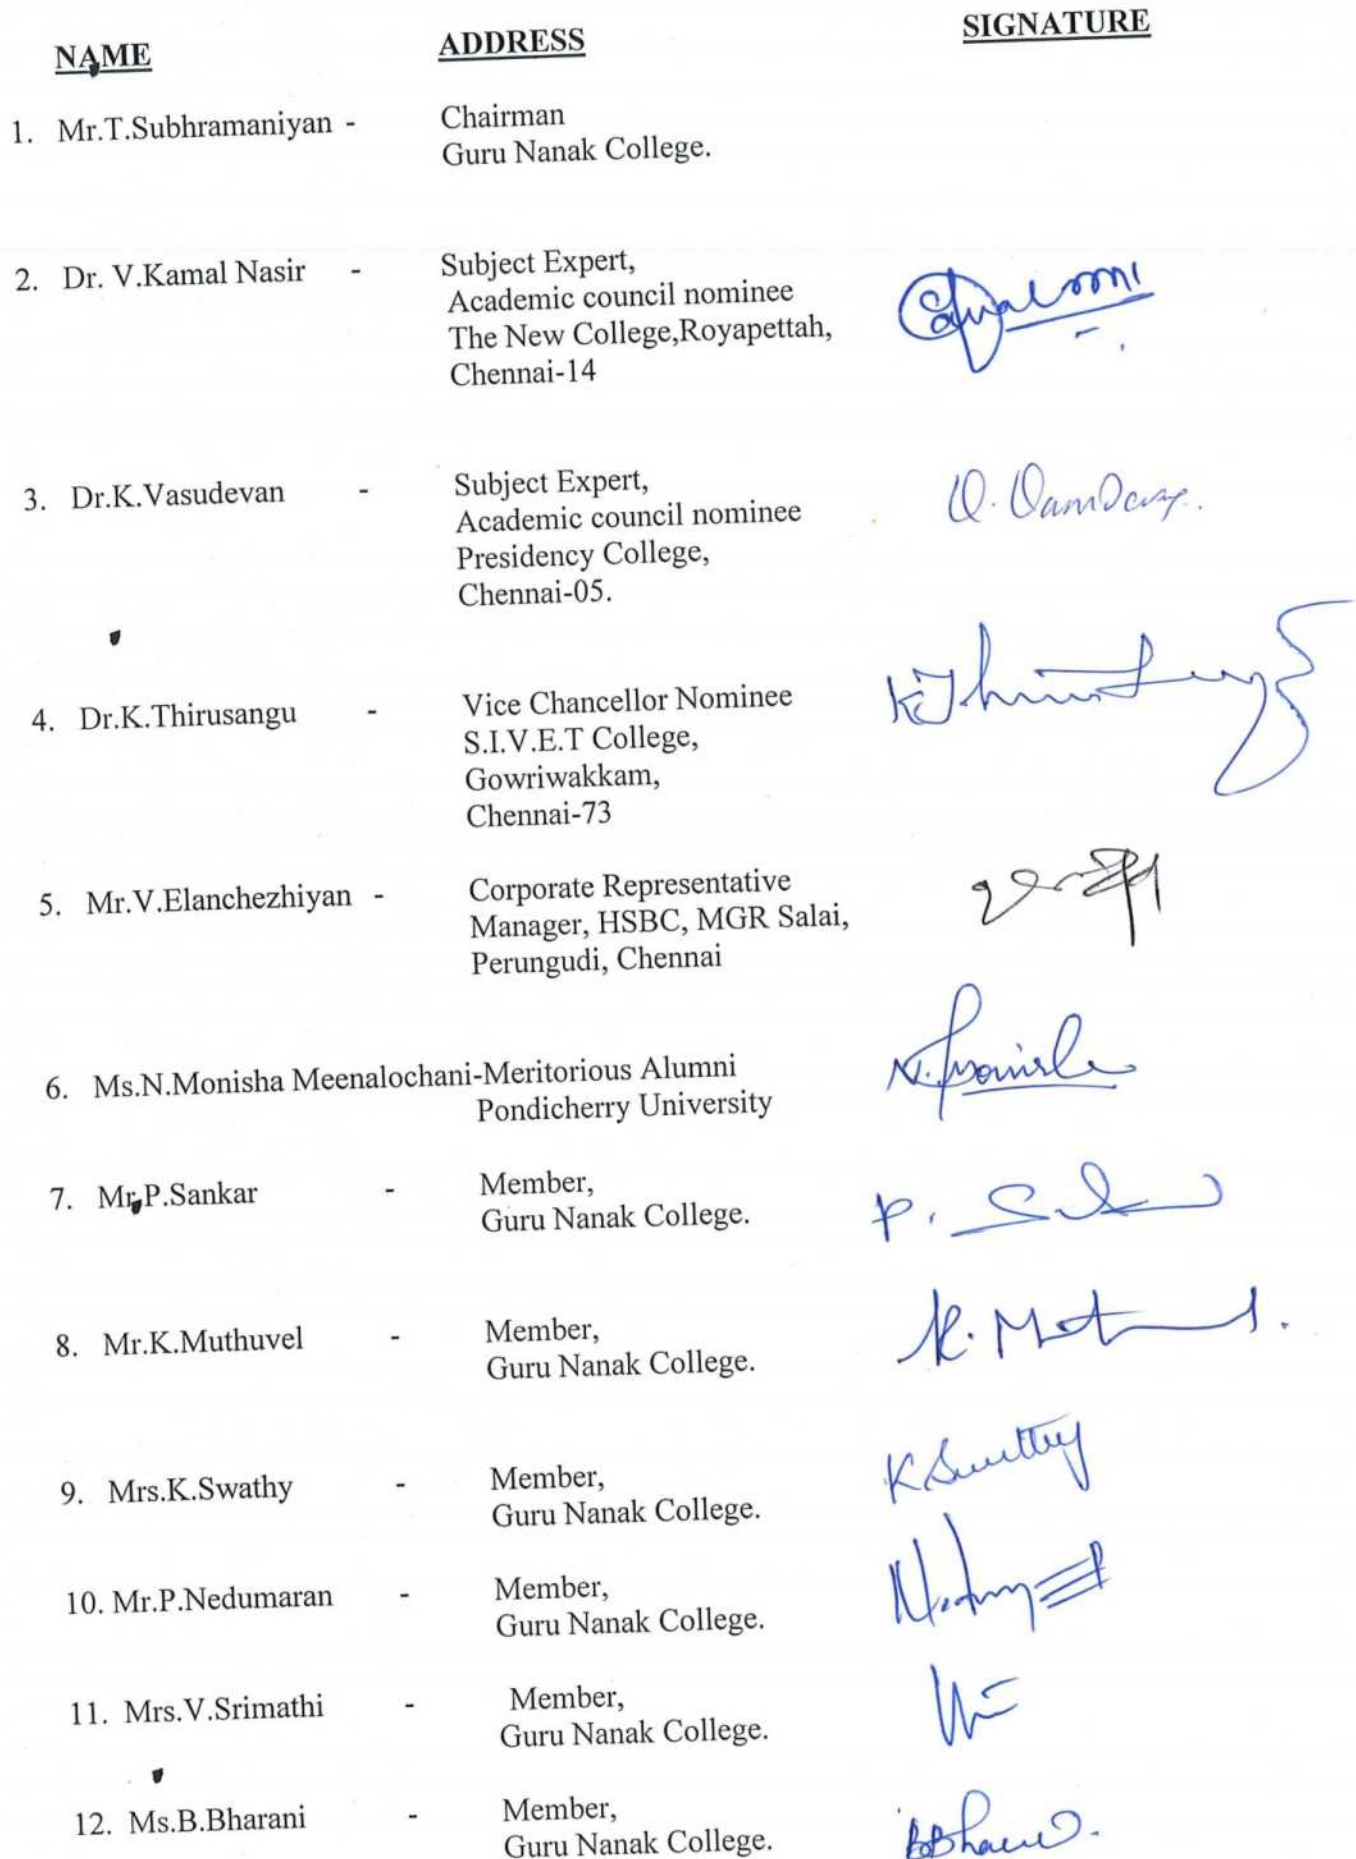 NAME ADDRESS SIGNATURE
1. Mr.T.Subhramaniyan - Chairman
Guru Nanak College.
2. Dr. V.Kamal Nasir - Subject Expert,
Academic council nominee
The New College,Royapettah,
Chennai-14
3. Dr.K.Vasudevan - Subject Expert,
Academic council nominee
Presidency College,
Chennai-05.
4. Dr.K.Thirusangu - Vice Chancellor Nominee
S.I.V.E.T College,
Gowriwakkam,
Chennai-73
5. Mr.V.Elanchezhiyan - Corporate Representative
Manager, HSBC, MGR Salai,
Perungudi, Chennai
6. Ms.N.Monisha Meenalochani-Meritorious Alumni
Pondicherry University
7. Mr.P.Sankar - Member,
Guru Nanak College. P.
8. Mr.K.Muthuvel - Member, K.
Guru Nanak College.
9. Mrs.K.Swathy - Member, K Swathy
Guru Nanak College.
10. Mr.P.Nedumaran - Member,
Guru Nanak College.
11. Mrs.V.Srimathi - Member,
Guru Nanak College.
12. Ms.B.Bharani - Member,
Guru Nanak College.